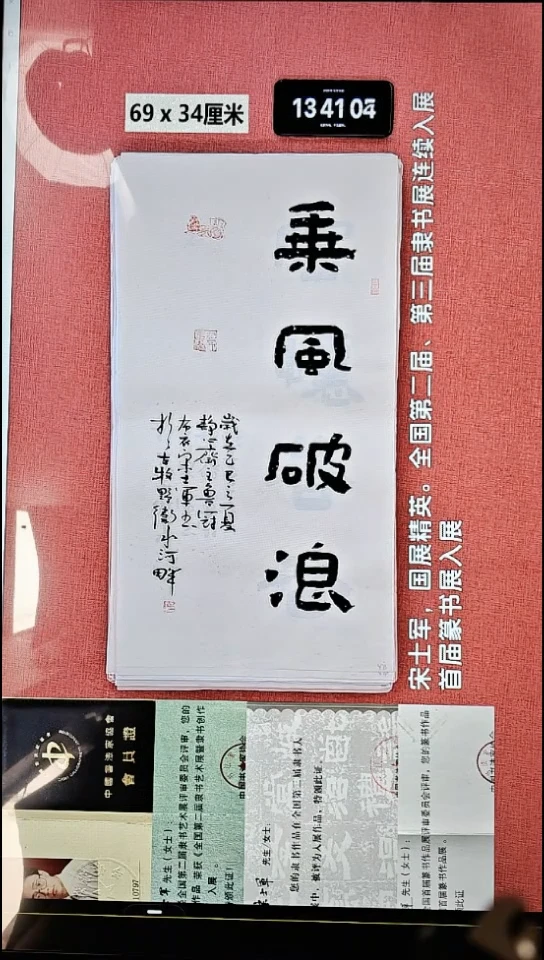 69 x 34厘米
13 41 04
乘風破浪
歲在乙巳之夏
宋士軍
古牧野衛水河畔
宋士军，国展精英。全国第二届、第三届隶书展连续入展
首届篆书展入展
中國書法家協會
會員證
军 先生（女士）
全国第二届隶书艺术展评审委员会评审，您的
作品 荣获《全国第二届隶书艺术展暨隶书创作
入展。
颁此证！
宋士军 先生/女士：
您的隶书作品在全国第二届隶书大
展中，被评为入展作品，特颁此证。
军 先生（女士）：
国首届篆书作品展评审委员会评审，您的篆书作品
全国首届篆书作品展。
颁此证